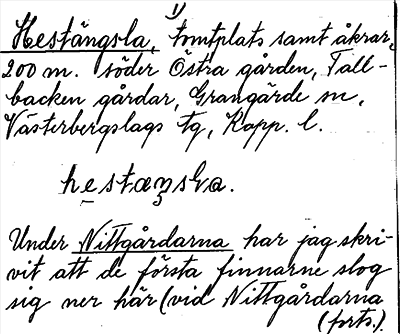 1)
Hestängsla, tomtplats samt åkrar,
200 m. söder Östra gården, Tall-
backen gårdar, Grangärde sn,
Västerbergslags tg, Kopp. l.
hestaŋsla.
Under Nittgårdarna har jag skri-
vit att de första finnarne slog
sig ner här (vid Nittgårdarna
(forts.).